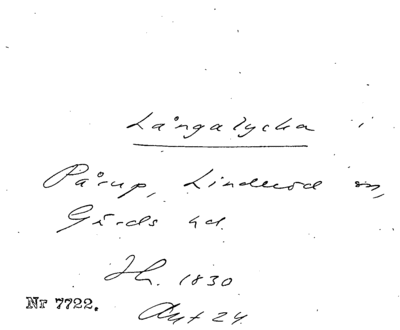 Långalycka i
Pårup, Linderöd sn,
Gärds hd.
Jh. 1830
Nr 7722.
Akt 24